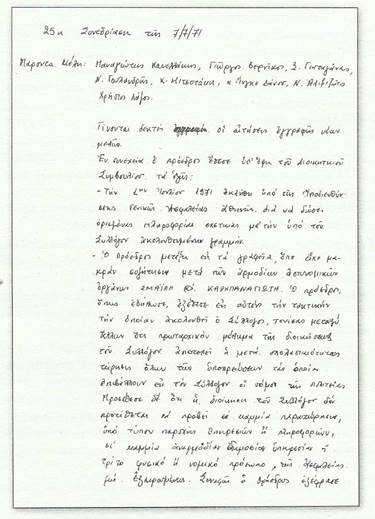 25η Συνεδρίαση της 7/7/71
Παρόντα Μέλη: Παναγιώτης Κανελλάκης, Γιώργος Βερνίκος, Σ.
Ν. Γουλανδρής, Κ. Μητσοτάκη, Άγγε Δάνος, Ν. Αλιβιζάτος
Χρήστος Λάζος.
Γίνονται δεκτές οι αιτήσεις εγγραφής νέων
μελών.
Εν συνεχεία ο πρόεδρος έθεσε υπ' όψη του Διοικητικού
Συμβουλίου τα εξής:
- Την 2αν Ιουλίου 1971 εκλήθη υπό της Υποδιευθύν
σεως Γενικής Ασφαλείας Αθηνών, διά να δώσει
ορισμένας πληροφορίας σχετικάς με την υπό του
Συλλόγου ακολουθουμένην γραμμήν.
- Ο πρόεδρος μετέβη εις τα γραφεία, όπου είχε μα-
κράν συζήτησιν μετά των αρμοδίων αστυνομικών
οργάνων ΣΜΑΪΛΗ & ΚΑΡΑΠΑΝΑΓΙΩΤΗ. Ο πρόεδρος,
όπως εδήλωσε, εξέθεσε εις αυτούς την τακτικήν
την οποίαν ακολουθεί ο Σύλλογος, τονίσας μεταξύ
άλλων ότι πρωταρχικόν μέλημα της διοικήσεως
του Συλλόγου αποτελεί η μετά σχολαστικότητος
τήρησις όλων των υποχρεώσεων τας οποίας
επιβάλλουν εις τον Σύλλογον οι νόμοι της πολιτείας
Προσέθεσε δε ότι η διοίκησις του Συλλόγου δεν
προτίθεται να προβεί σε καμμία παραχώρησιν,
υπό τύπον παροχής υπηρεσιών ή πληροφοριών,
σε καμμία αναρμοδίαν δημοσίαν υπηρεσίαν ή
τρίτο φυσικό ή νομικό πρόσωπο, της Ασφαλείας
μη εξαιρουμένης. Συνεχώς ο πρόεδρος εξέφρασε